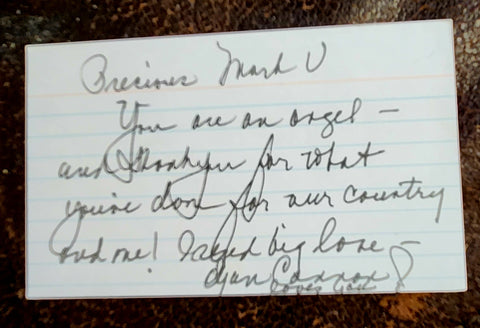 Precious Mark V
You are an angel —
and thank you for what
you've done for our country
and me! I send big love —
Dyan Cannon
loves you